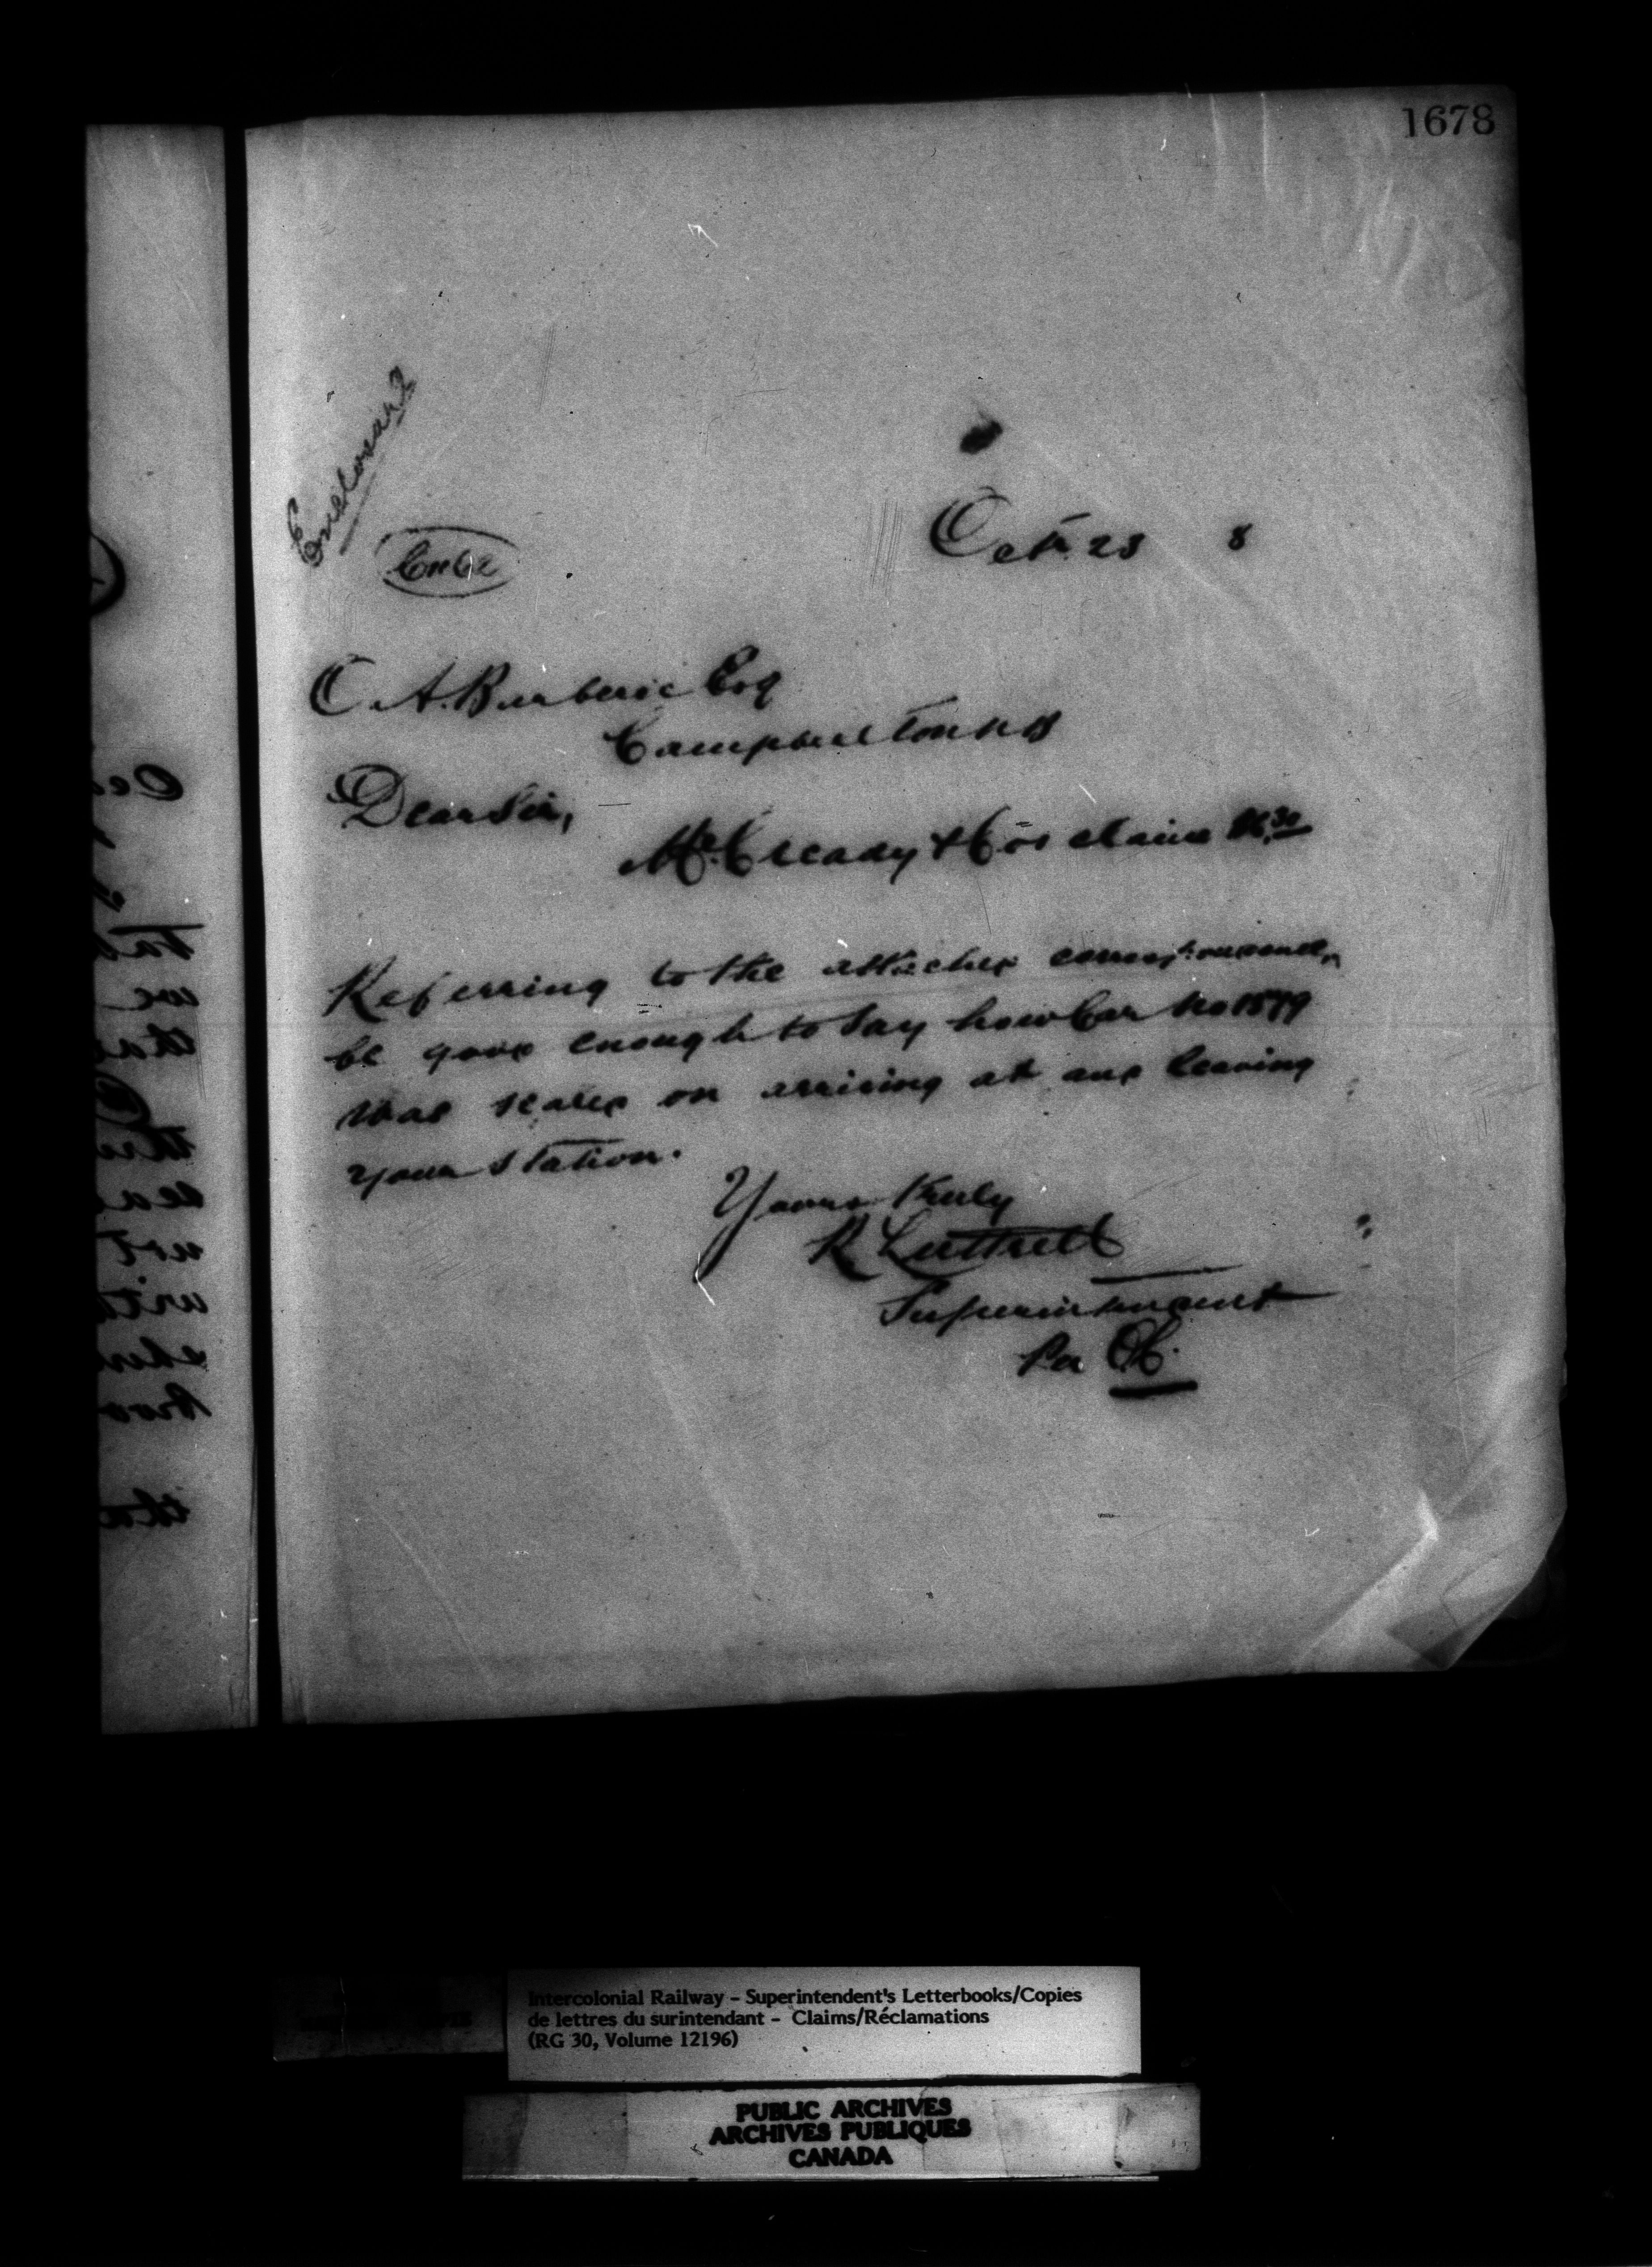 1678
Enclosures
Cn62
Octr. 23 8
C. A. Barberie Esq
Campbellton N B
Dear Sir,
McCready & Cos claim
Referring to the attached correspondence,
be good enough to say how Car No 1579
was sealed on arriving at and leaving
your station.
Yours truly
R Luttrell
Superintendent
Per
Intercolonial Railway – Superintendent's Letterbooks/Copies
de lettres du surintendant – Claims/Réclamations
(RG 30, Volume 12196)
PUBLIC ARCHIVES
ARCHIVES PUBLIQUES
CANADA